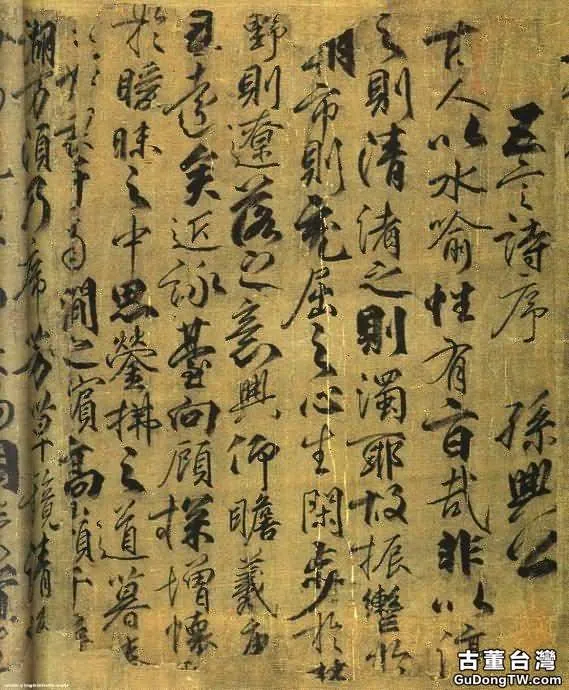 五言詩序 孫興公
古人以水喻性有旨哉非以渟
之則清淆之則濁耶故振轡於
朝市則充屈之心生閑步於林
野則遼落之意興仰瞻羲唐
遠矣近詠臺閣顧探增懷
於曖昧之中思瑩拂之道暮春
于南澗之濱高嶺千尋
湖萬頃乃席芳草鏡清流
古董台灣
GuDongTW.com